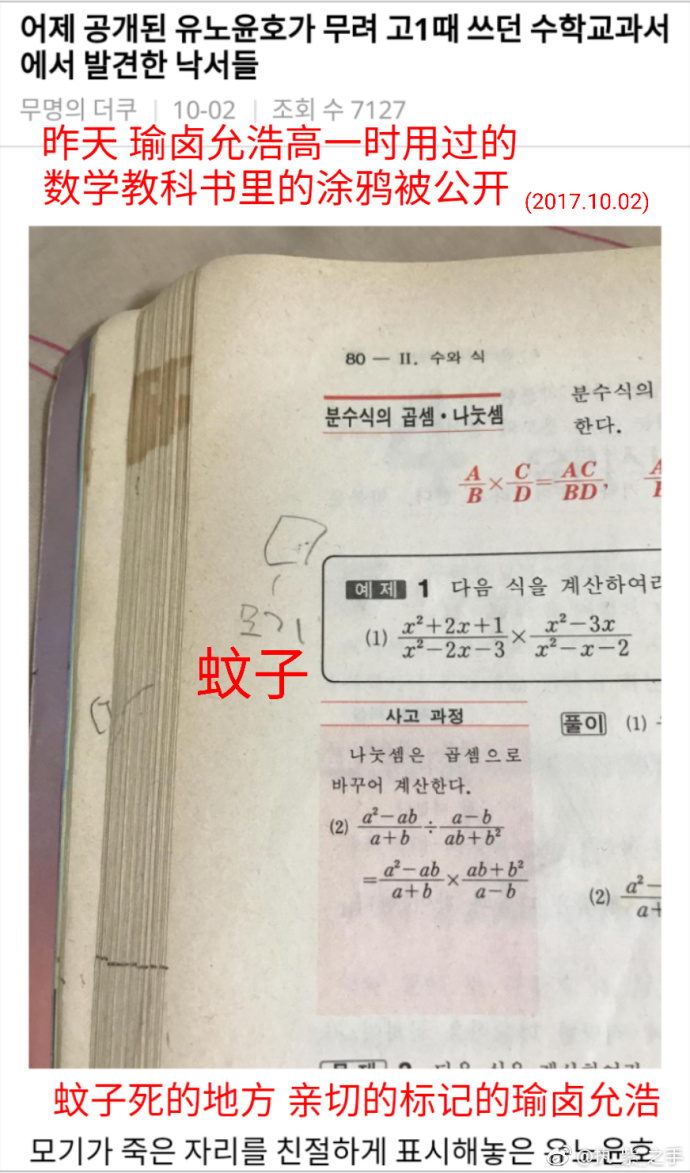 어제 공개된 유노윤호가 무려 고1때 쓰던 수학교과서
에서 발견한 낙서들
무명의 더쿠 | 10-02 | 조회 수 7127
昨天 瑜卤允浩高一时用过的
数学教科书里的涂鸦被公开 (2017.10.02)
80 — II. 수와 식
분수식의 곱셈·나눗셈
분수식의
한다.
A/B × C/D = AC/BD,
모기
蚊子
예제 1 다음 식을 계산하여라
(1) (x²+2x+1)/(x²−2x−3) × (x²−3x)/(x²−x−2)
사고 과정
풀이 (1)
나눗셈은 곱셈으로
바꾸어 계산한다.
(2) (a²−ab)/(a+b) ÷ (a−b)/(ab+b²)
= (a²−ab)/(a+b) × (ab+b²)/(a−b)
(2)
蚊子死的地方 亲切的标记的瑜卤允浩
모기가 죽은 자리를 친절하게 표시해놓은 유노윤호